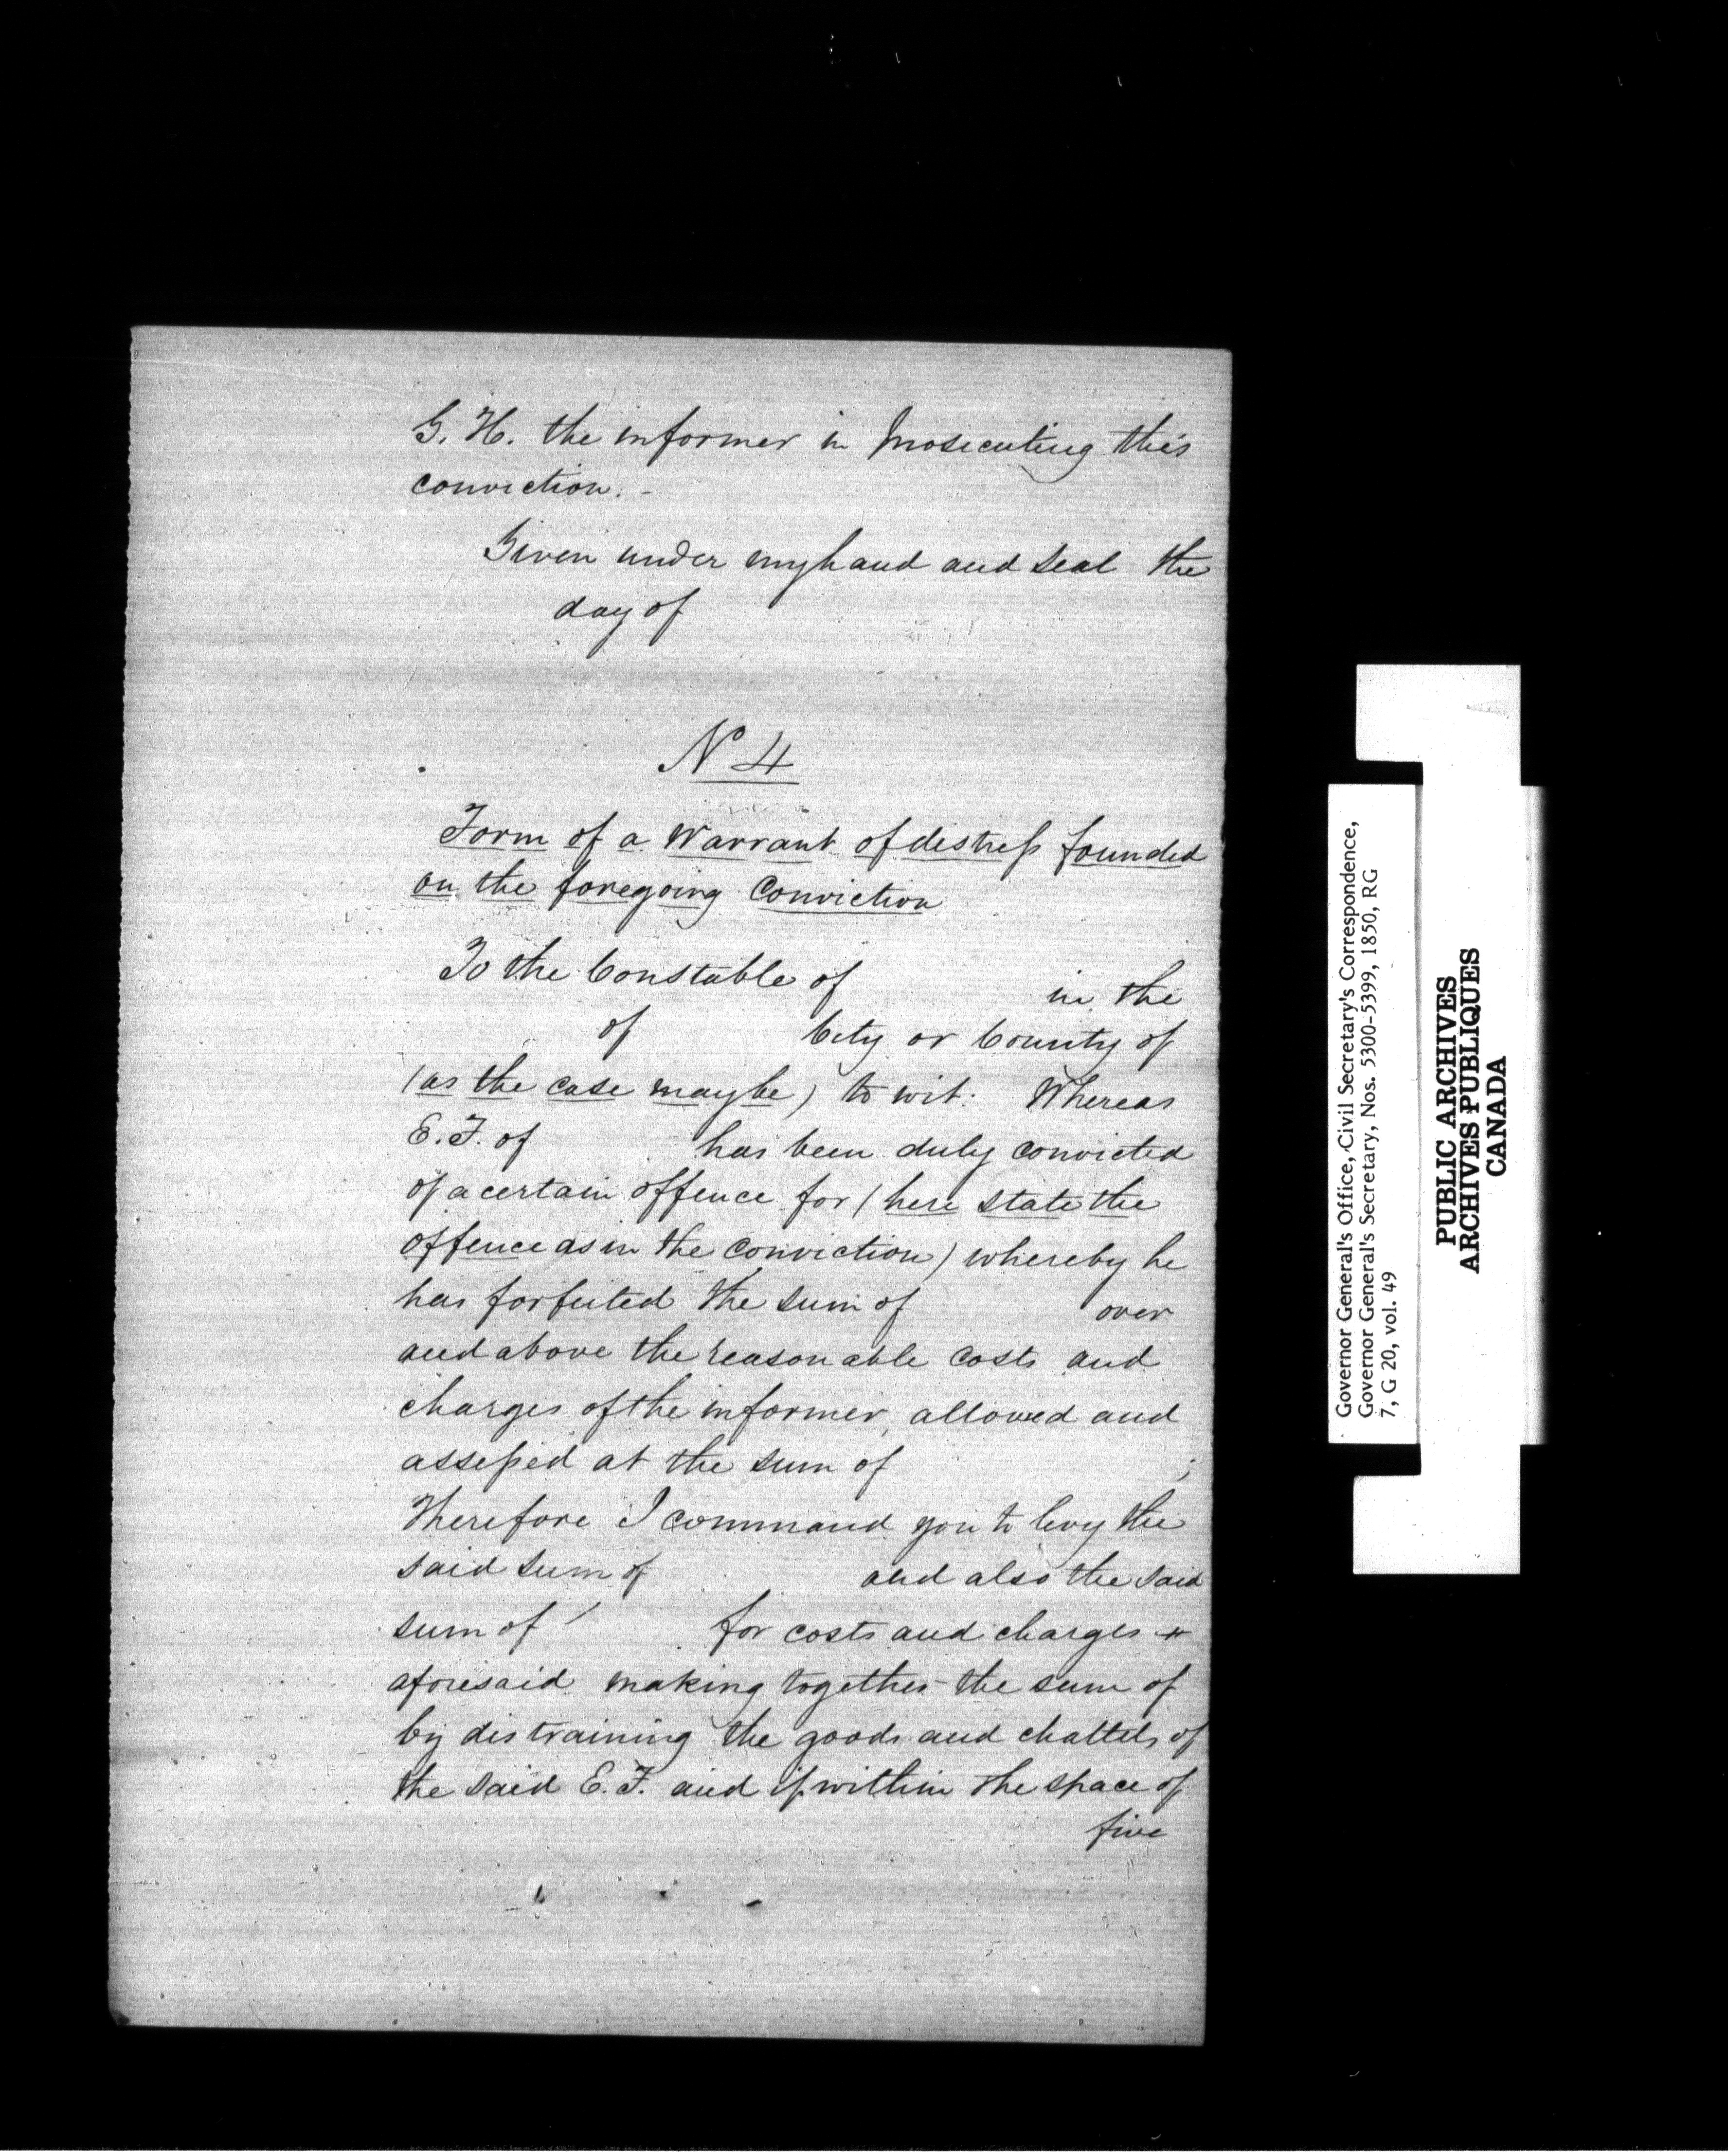 G. H. the informer in prosecuting this
conviction. -
Given under my hand and seal the
day of
N 4
Form of a Warrant of distress founded
on the foregoing Conviction
To the Constable of in the
of City or County of
(as the case may be) to wit: Whereas
E. F. of has been duly convicted
of a certain offence for (here state the
offence as in the conviction) whereby he
has forfeited the sum of over
and above the reasonable costs and
charges of the informer, allowed and
assessed at the sum of ;
Therefore I command you to levy the
said sum of and also the said
sum of for costs and charges
aforesaid making together the sum of
by distraining the goods and chattels of
the said E. F. and if within the space of
five
Governor General's Office, Civil Secretary's Correspondence,
Governor General's Secretary, Nos. 5300-5399, 1850, RG
7, G 20, vol. 49
PUBLIC ARCHIVES
ARCHIVES PUBLIQUES
CANADA